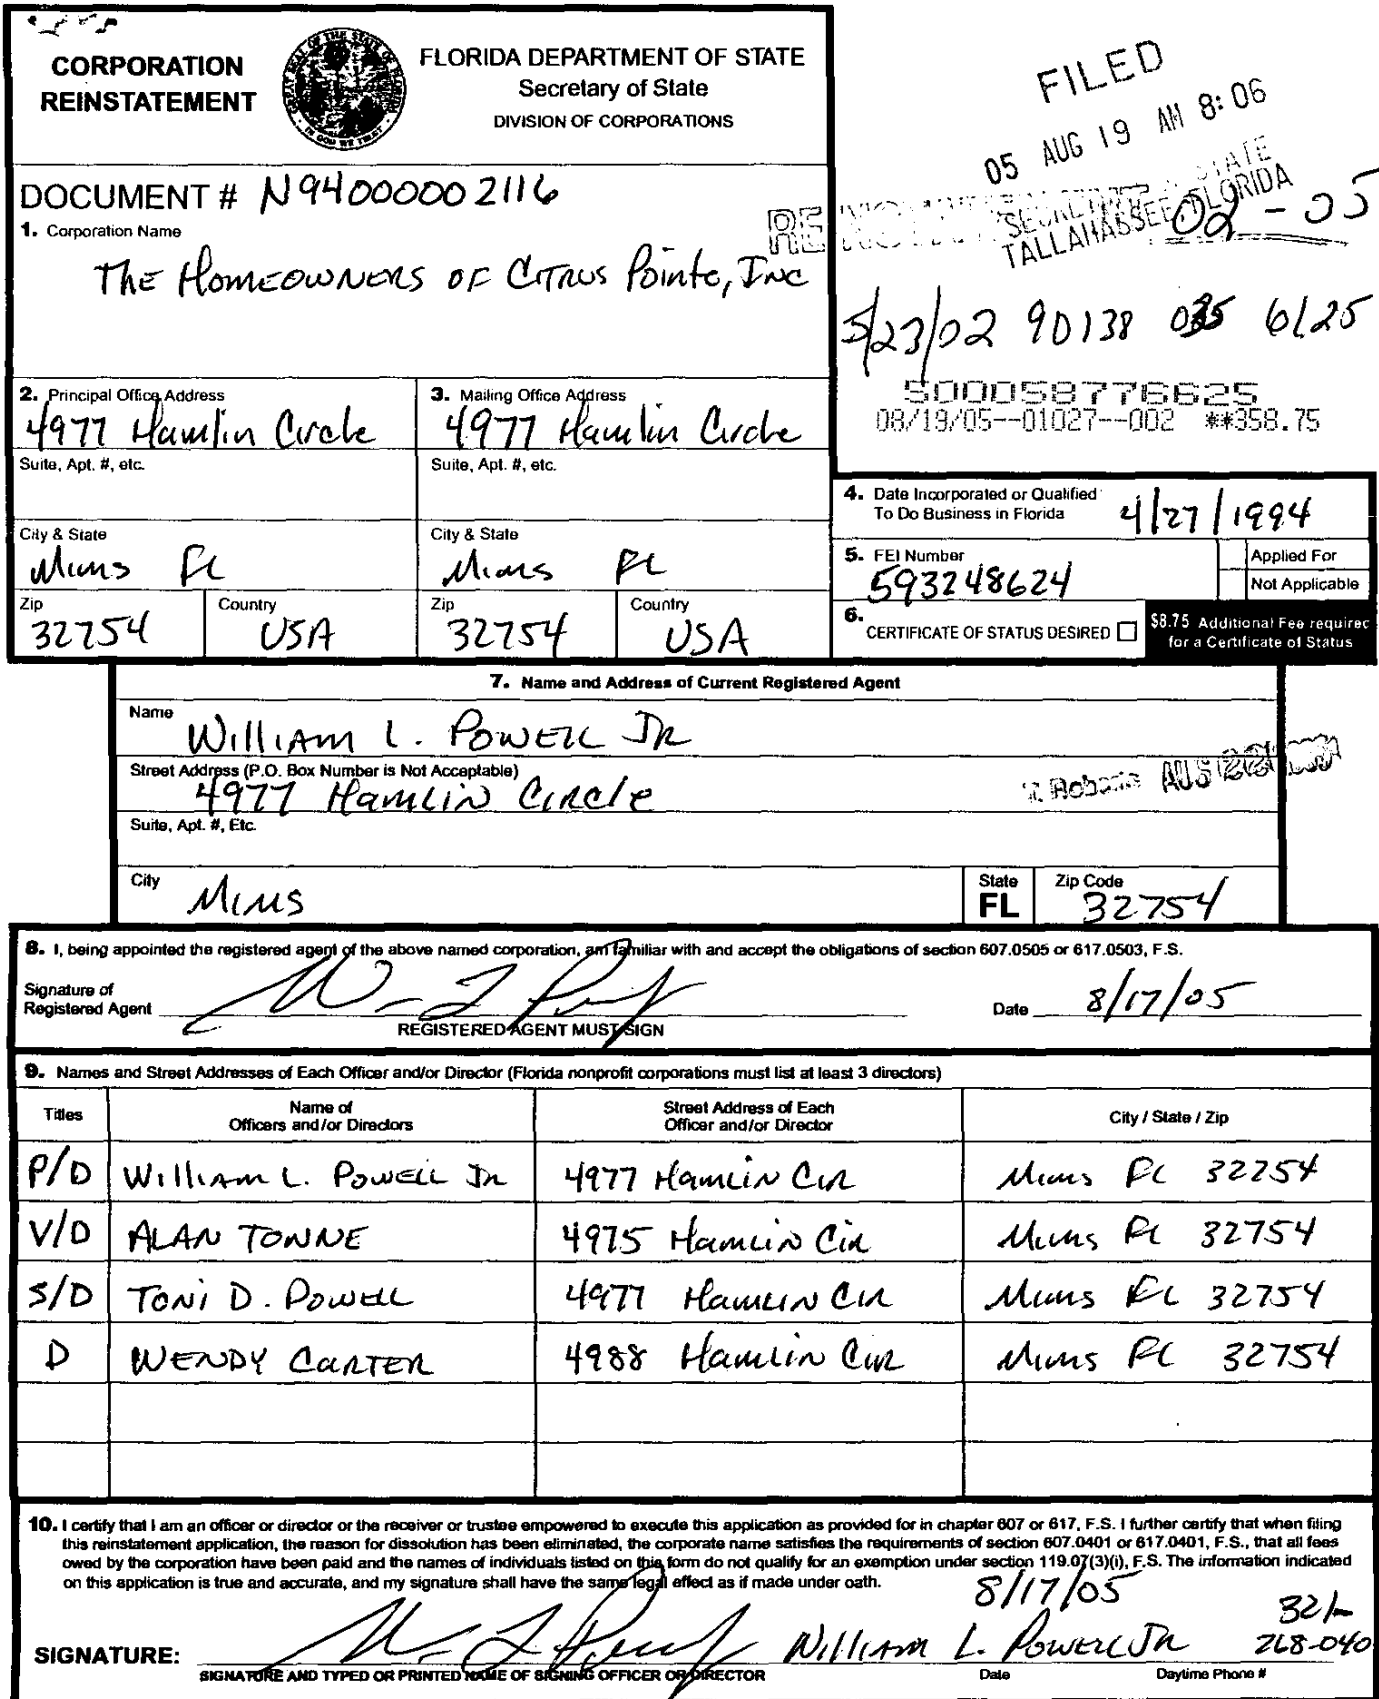 CORPORATION
REINSTATEMENT
FLORIDA DEPARTMENT OF STATE
Secretary of State
DIVISION OF CORPORATIONS
FILED
05 AUG 19 AM 8:06
SECRETARY OF STATE
TALLAHASSEE FLORIDA
REINSTATEMENT 02-05
DOCUMENT # N94000002116
1. Corporation Name
THE HOMEOWNERS OF CITRUS Pointe, INC
5/23/02 90138 035 6125
500058776625
08/19/05--01027--002 **358.75
2. Principal Office Address
4977 Hamlin Circle
3. Mailing Office Address
4977 Hamlin Circle
Suite, Apt. #, etc.
Suite, Apt. #, etc.
City & State
Mims FL
City & State
Mims FL
Zip
32754
Country
USA
Zip
32754
Country
USA
4. Date Incorporated or Qualified
To Do Business in Florida
4/27/1994
5. FEI Number
593248624
Applied For
Not Applicable
6. CERTIFICATE OF STATUS DESIRED
$8.75 Additional Fee required
for a Certificate of Status
7. Name and Address of Current Registered Agent
Name
William L. Powell Jr
Street Address (P.O. Box Number is Not Acceptable)
4977 Hamlin Circle
AUG 22
Suite, Apt. #, Etc.
City
Mims
State
FL
Zip Code
32754
8. I, being appointed the registered agent of the above named corporation, am familiar with and accept the obligations of section 607.0505 or 617.0503, F.S.
Signature of
Registered Agent
Date 8/17/05
REGISTERED AGENT MUST SIGN
9. Names and Street Addresses of Each Officer and/or Director (Florida nonprofit corporations must list at least 3 directors)
Titles
Name of
Officers and/or Directors
Street Address of Each
Officer and/or Director
City / State / Zip
P/D William L. Powell Jr 4977 Hamlin Cir Mims FL 32754
V/D ALAN TONNE 4975 Hamlin Cir Mims FL 32754
S/D TONI D. POWELL 4977 Hamlin Cir Mims FL 32754
D WENDY CARTER 4988 Hamlin Cir Mims FL 32754
10. I certify that I am an officer or director or the receiver or trustee empowered to execute this application as provided for in chapter 607 or 617, F.S. I further certify that when filing
this reinstatement application, the reason for dissolution has been eliminated, the corporate name satisfies the requirements of section 607.0401 or 617.0401, F.S., that all fees
owed by the corporation have been paid and the names of individuals listed on this form do not qualify for an exemption under section 119.07(3)(i), F.S. The information indicated
on this application is true and accurate, and my signature shall have the same legal effect as if made under oath.
8/17/05
321-
SIGNATURE: William L. Powell Jr 268-040
SIGNATURE AND TYPED OR PRINTED NAME OF SIGNING OFFICER OR DIRECTOR
Date
Daytime Phone #